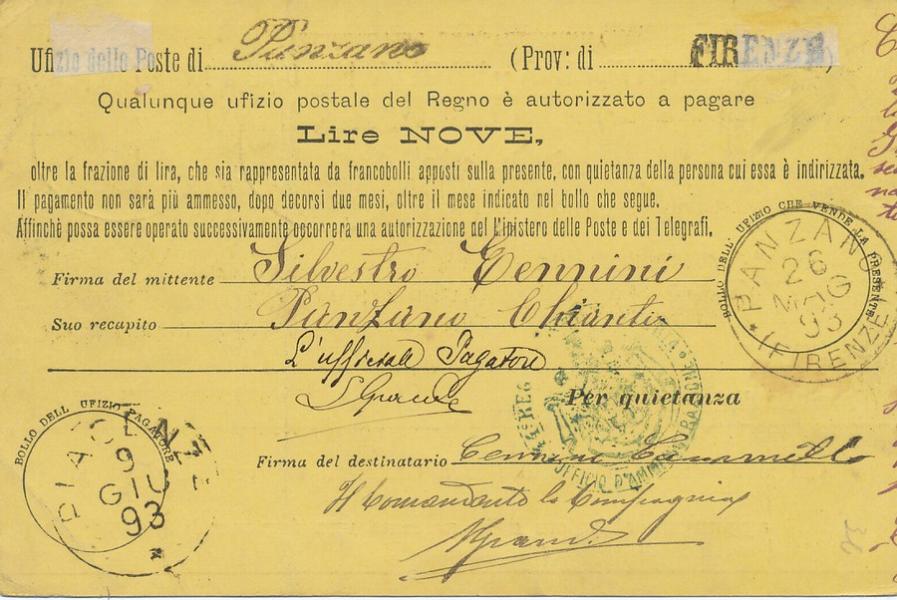 Ufizio delle Poste di Panzano (Prov: di FIRENZE)
Qualunque ufizio postale del Regno è autorizzato a pagare
Lire NOVE,
oltre la frazione di lira, che sia rappresentata da francobolli apposti sulla presente, con quietanza della persona cui essa è indirizzata.
Il pagamento non sarà più ammesso, dopo decorsi due mesi, oltre il mese indicato nel bollo che segue.
Affinchè possa essere operato successivamente occorrerà una autorizzazione del Ministero delle Poste e dei Telegrafi.
BOLLO DELL' UFIZIO CHE VENDE LA PRESENTE
PANZANO
26
MAG
93
(FIRENZE)
Firma del mittente Silvestro Cennini
Suo recapito Panzano Chianti
L'ufficiale Pagatore
Per quietanza
UFFICIO D'AMMINISTRAZION
BOLLO DELL UFIZIO PAGATORE
PIACENZA
9
GIU
93
Firma del destinatario Cennini
Il Comandante la Compagnia
36